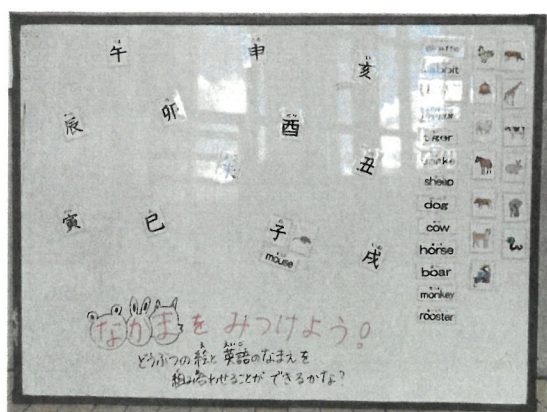 午 申 亥
辰 卯 酉
丑
寅 巳 子 戌
mouse
giraffe
rabbit
tiger
snake
sheep
dog
cow
horse
boar
monkey
rooster
なかまをみつけよう!
どうぶつの絵と英語のなまえを
組み合わせることができるかな?